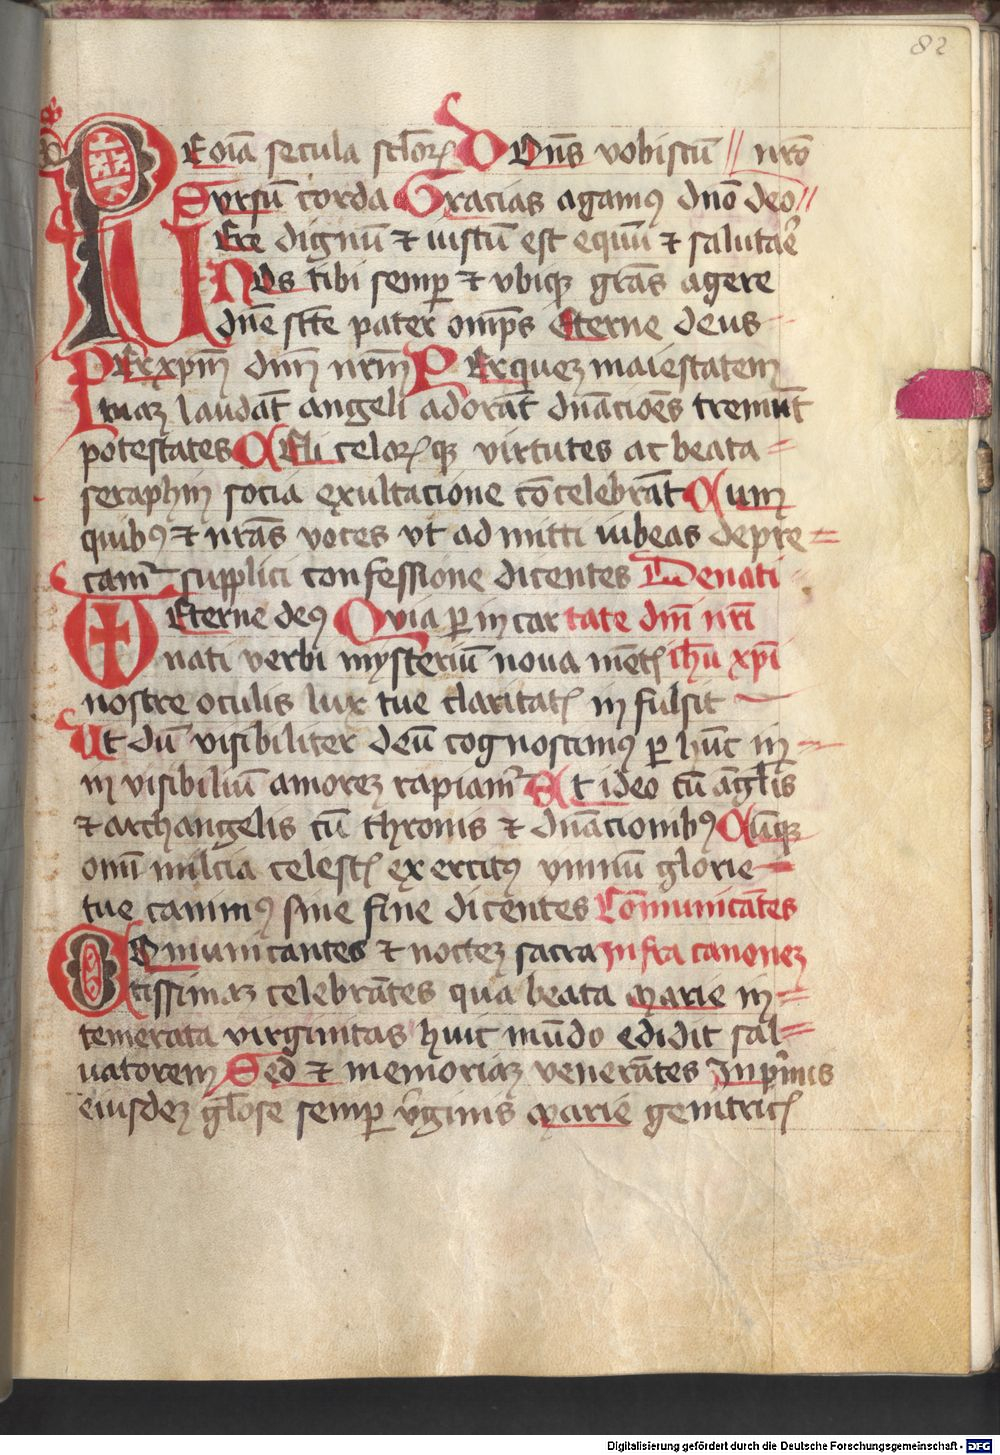 82
PEr oīa secula sclorꝫ Dn̄s vobiscū // nr̄o
Svrsū corda Gracias agamꝰ dn̄o deo //
VEre dignū ⁊ iustū est equū ⁊ salutar̄e
Nos tibi semꝑ ⁊ vbiqꝫ gr̄as agere
dn̄e sc̄te pater om̄ps Eterne deus
PEr xp̄m dn̄m nr̄m PEr quez maiestatem
tuaz laudāt angeli adorāt dn̄acioēs tremūt
potestates CEli celorꝫ qꝫ virtutes ac beata =
seraphin socia exultacione cōcelebrāt Cum
quibꝰ ⁊ nr̄as voces vt ad mitti iubeas depre =
camꝰ supplici confessione dicentes De nati
Eterne deꝰ Qvia ꝑ in car tate dn̄i nr̄i
nati verbi mysteriū noua mētꝭ ih̄u xp̄i
nostre oculis lux tue claritatꝭ in fulsit
Ut dū visibiliter deū cognoscimꝰ ꝑ hūc in
in visibiliū amorez rapiamꝰ Et ideo cū āgl̄is
⁊ archangelis cū thronis ⁊ dn̄acionibꝰ Cūqꝫ
om̄i milicia celestꝭ exercitꝰ ymnū glorie =
tue canimꝰ sine fine dicentes Cōmunicātes
COmunicantes ⁊ noctez sacra Infra canonez
tissimaz celebrātes qua beata Marie in =
temerata virginitas huic mūdo edidit sal =
uatorem Sed ⁊ memoriaz venerātes In pͥmis
eiusdez gl̄ose semꝑ vͥginis Marie genitricꝭ
Digitalisierung gefördert durch die Deutsche Forschungsgemeinschaft - DFG